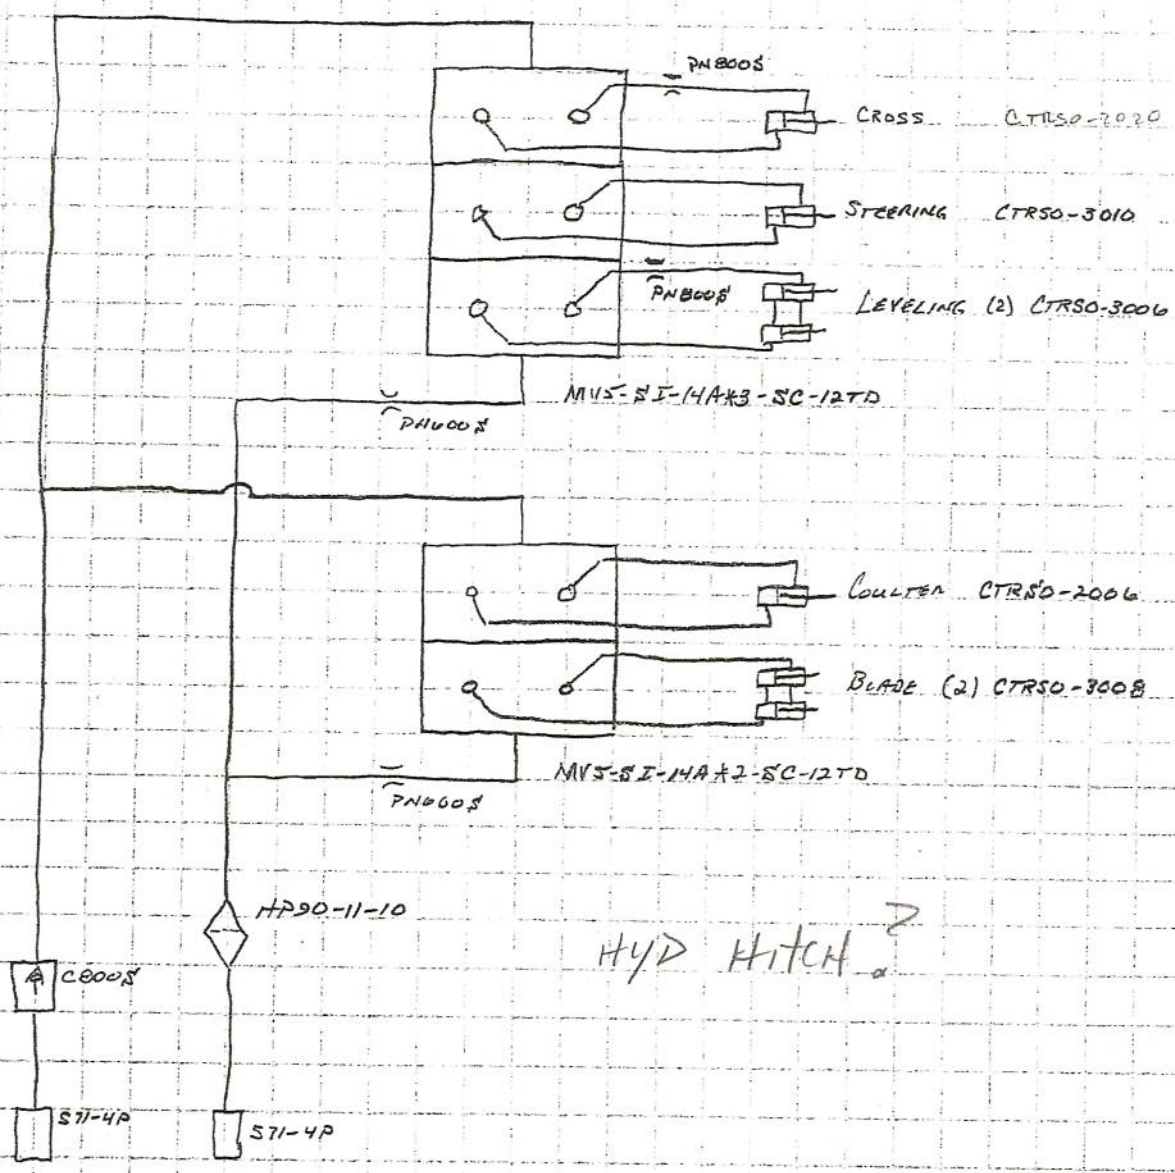 PN800S
CROSS CTRSO-2020
STEERING CTRSO-3010
PN800S
LEVELING (2) CTRSO-3006
MV5-SI-14A*3-SC-12TD
PN600S
COULTER CTRSO-2006
BLADE (2) CTRSO-3008
MV5-SI-14A*2-SC-12TD
PN600S
HP90-11-10
HYD HITCH?
C800S
S71-4P
S71-4P